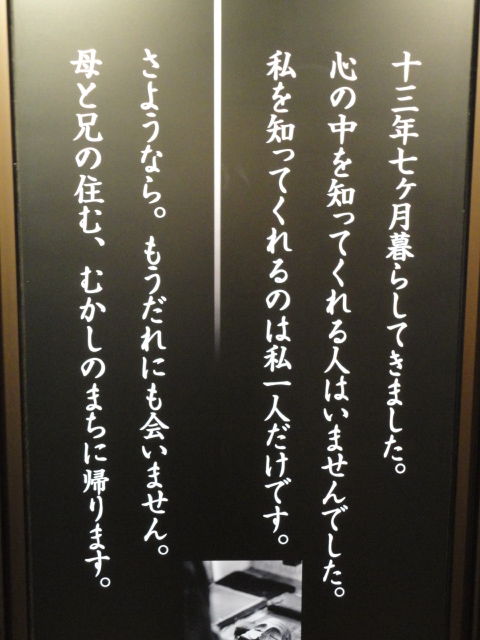 十三年七ヶ月暮らしてきました。
心の中を知ってくれる人はいませんでした。
私を知ってくれるのは私一人だけです。
さようなら。もうだれにも会いません。
母と兄の住む、むかしのまちに帰ります。